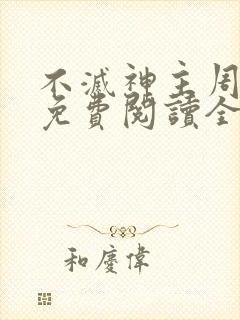 不滅神主周
免費閱讀全
和慶偉